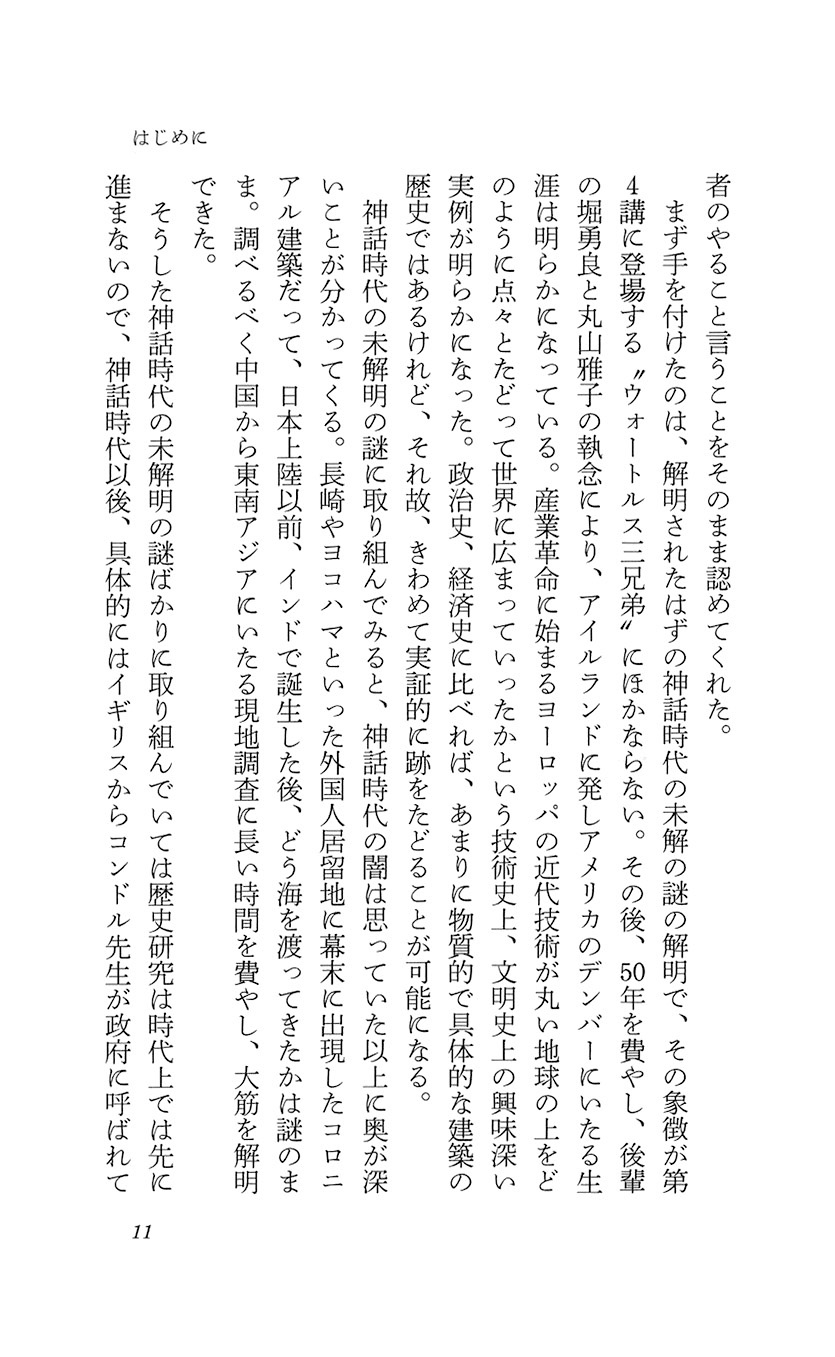 はじめに
者のやること言うことをそのまま認めてくれた。
まず手を付けたのは、解明されたはずの神話時代の未解の謎の解明で、その象徴が第
4講に登場する〝ウォートルス三兄弟〟にほかならない。その後、50年を費やし、後輩
の堀勇良と丸山雅子の執念により、アイルランドに発しアメリカのデンバーにいたる生
涯は明らかになっている。産業革命に始まるヨーロッパの近代技術が丸い地球の上をど
のように点々とたどって世界に広まっていったかという技術史上、文明史上の興味深い
実例が明らかになった。政治史、経済史に比べれば、あまりに物質的で具体的な建築の
歴史ではあるけれど、それ故、きわめて実証的に跡をたどることが可能になる。
神話時代の未解明の謎に取り組んでみると、神話時代の闇は思っていた以上に奥が深
いことが分かってくる。長崎やヨコハマといった外国人居留地に幕末に出現したコロニ
アル建築だって、日本上陸以前、インドで誕生した後、どう海を渡ってきたかは謎のま
ま。調べるべく中国から東南アジアにいたる現地調査に長い時間を費やし、大筋を解明
できた。
そうした神話時代の未解明の謎ばかりに取り組んでいては歴史研究は時代上では先に
進まないので、神話時代以後、具体的にはイギリスからコンドル先生が政府に呼ばれて
11